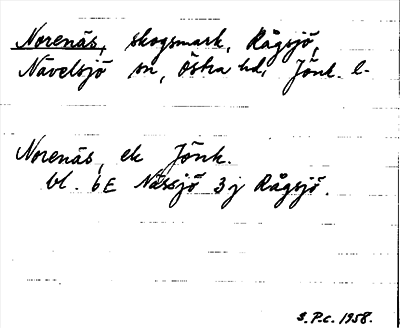 Norenäs, skogsmark, Rågsjö,
Nävelsjö sn, Östra hd, Jönk. l.
Norenäs, ek Jönk.
bl. 6E Nässjö 3j Rågsjö.
S.P.C. 1958.